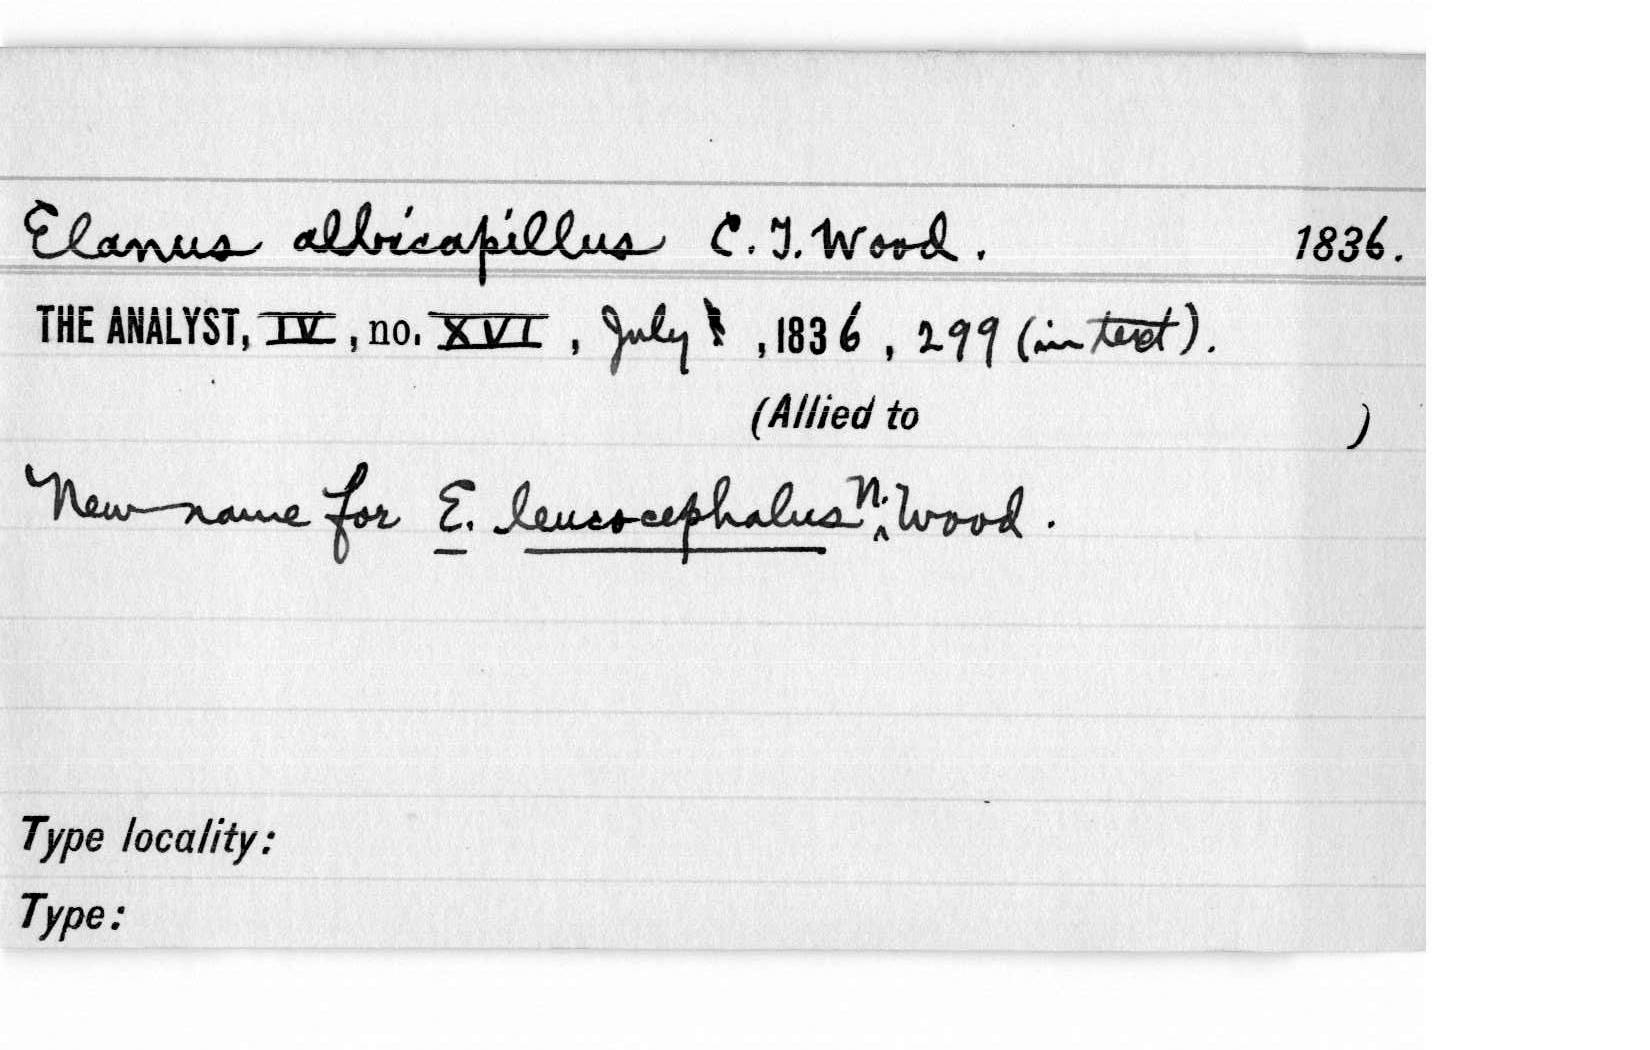 Elanus albicapillus C. T. Wood. 1836.
THE ANALYST, IV, no. XVI, July, 1836, 299 (in text).
(Allied to )
New name for E. leucocephalus N. Wood.
Type locality:
Type: